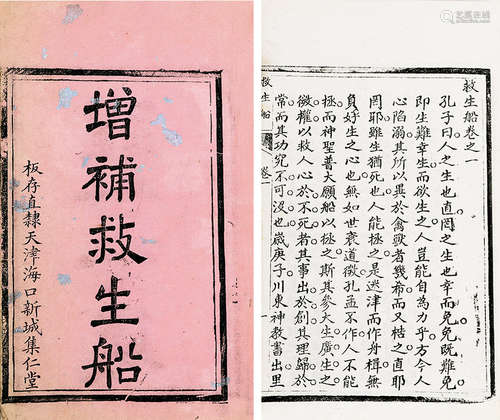 增補救生船
板存直隸天津海口新城集仁堂
救生船卷之一
孔子曰人之生也直罔之生也幸而免免既難免
即生難幸生而欲生之人豈能自為力乎方今人
心陷溺其所以異於禽獸者幾希而又梏之直耶
罔耶雖生猶死也人能拯之是迷津而作舟楫無
負好生之心也無如世衰道微孔孟不作人不能
拯而神聖普大願船以拯之斯其參大生廣生之
微權以救人心於不死者其事出於創其理歸於
常而其功究不可沒也歲庚子川東神教書出里
救生船
卷一